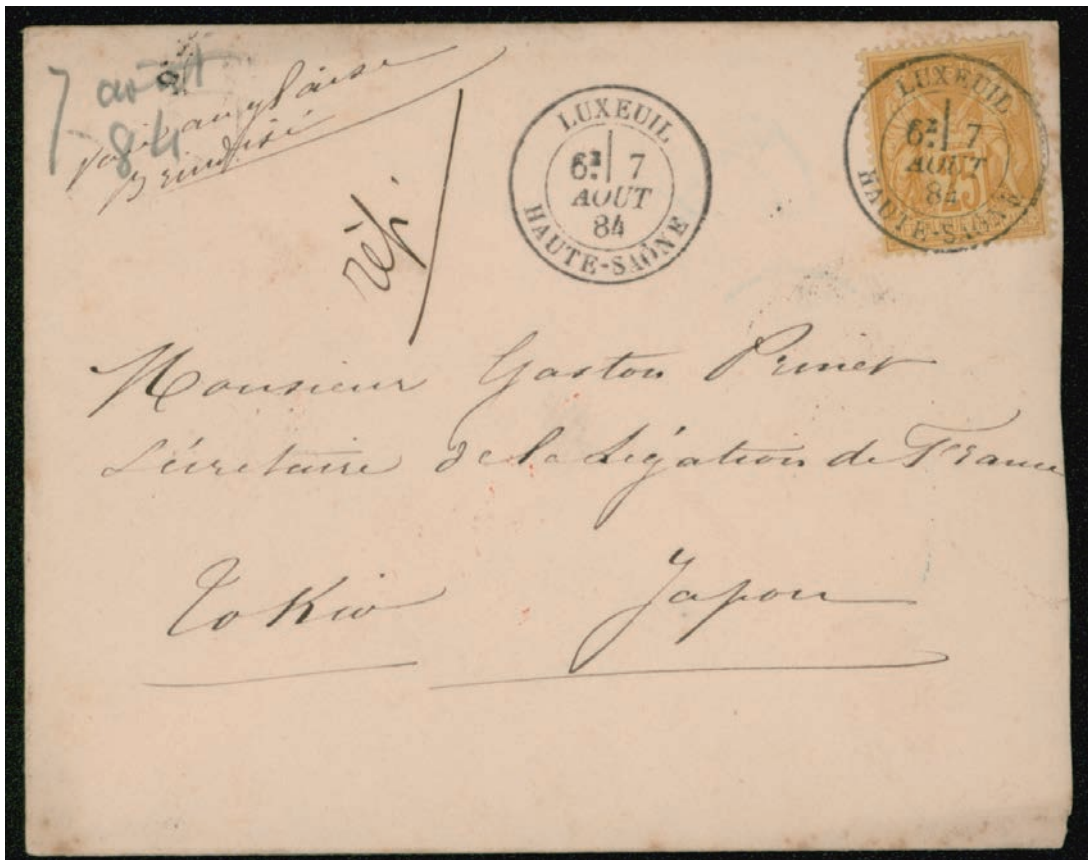 7 août
84
voie anglaise
Brindisi
rép/
LUXEUIL
6E 7
AOUT
84
HAUTE-SAÔNE
LUXEUIL
6E 7
AOUT
84
HAUTE-SAÔNE
25
Monsieur Gaston Prinet
Sécretaire de la Légation de France
Tokio Japon